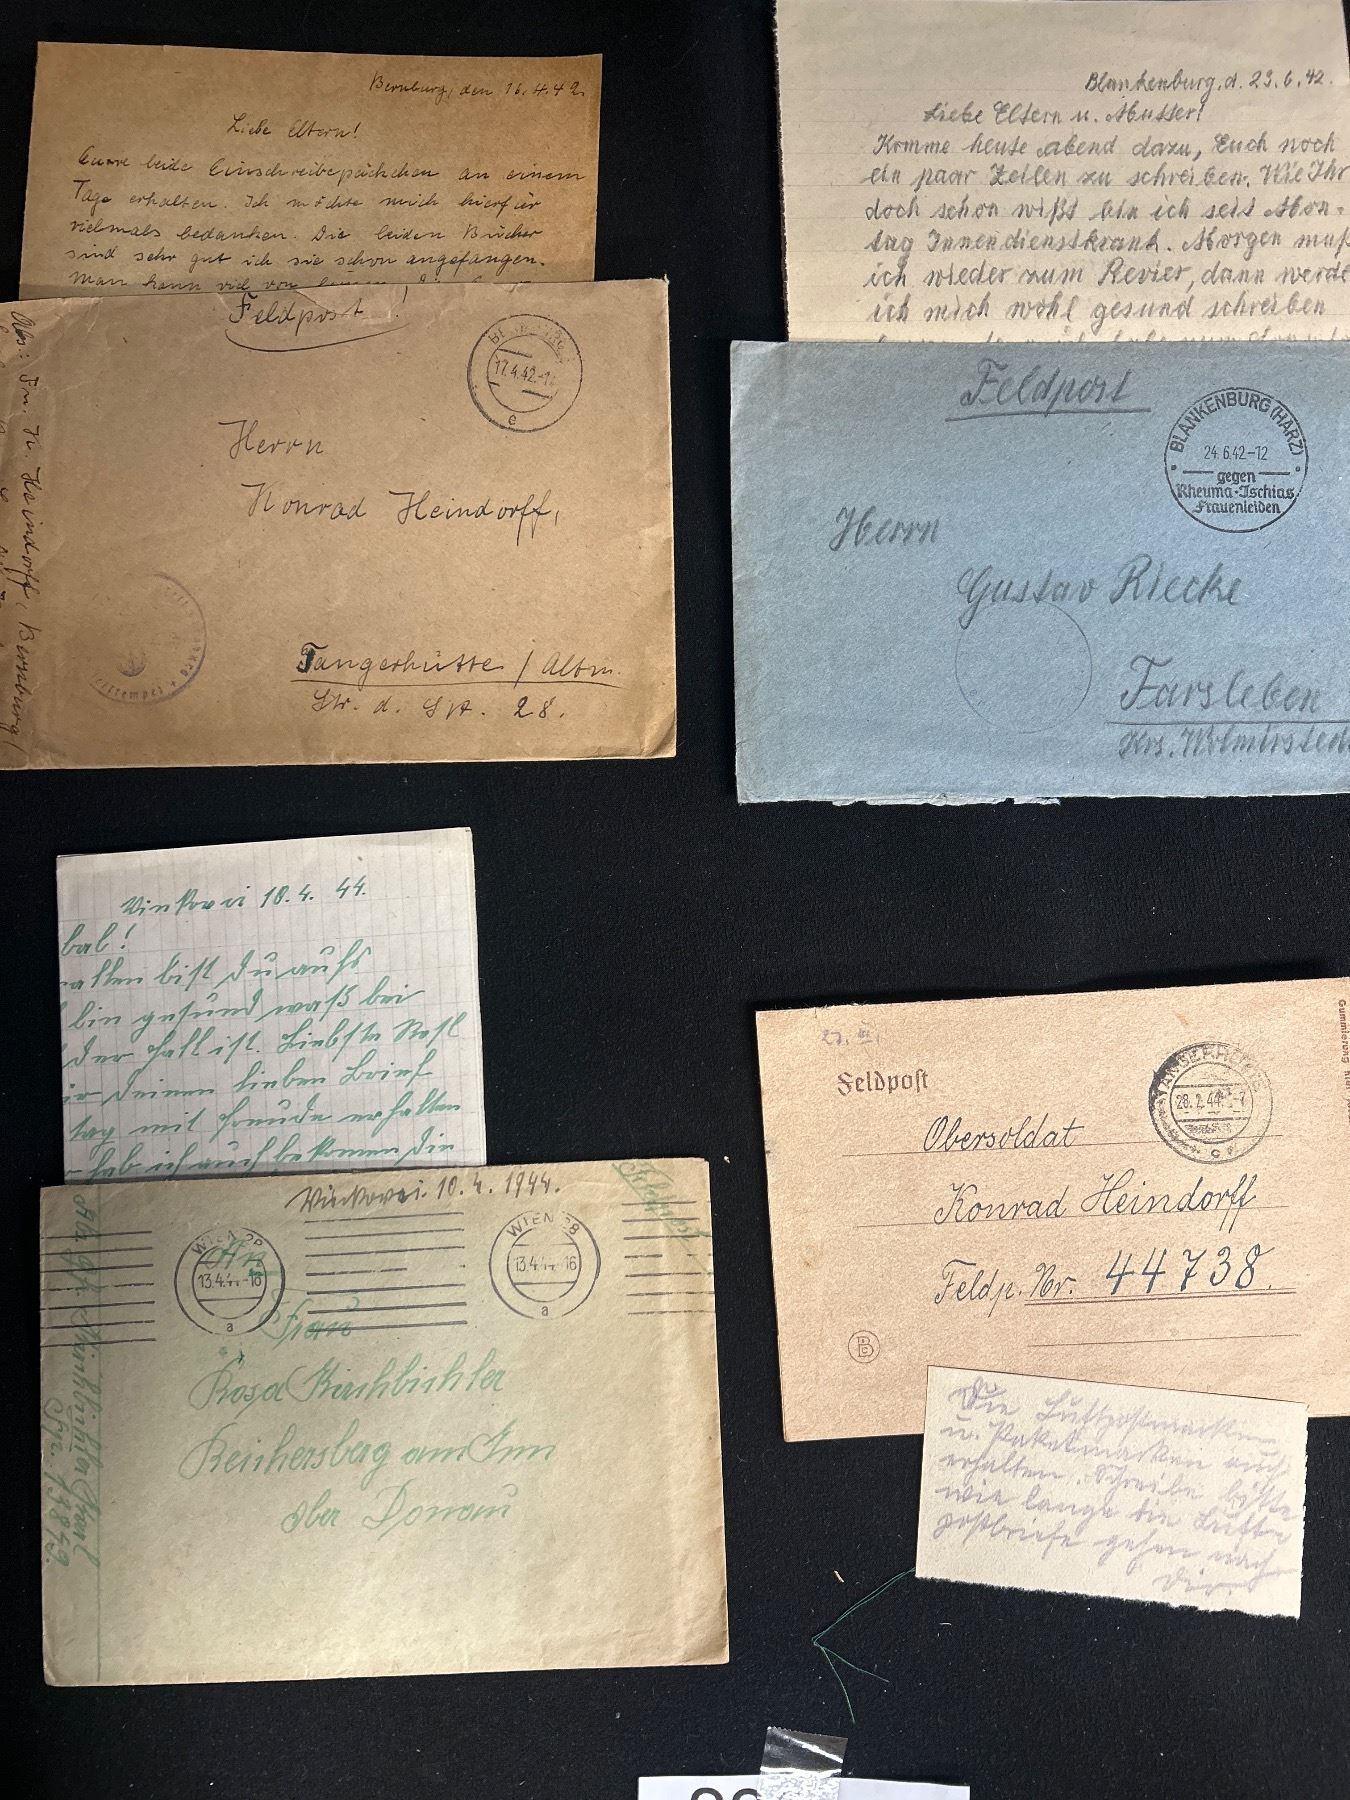 Bernburg, den 16.4.42.
Liebe Eltern!
Eure beide Einschreibepäckchen an einem
Tage erhalten. Ich möchte mich hierfür
vielmals bedanken. Die beiden Bücher
sind sehr gut ich sie schon angefangen.
Man kann viel von
Feldpost!
17.4.42.-1
e
Herrn
Konrad Heindorff,
Tangerhütte / Altm.
Str. d. SA. 28.
Abs: K. Heindorff, Bernburg
Blankenburg, d. 23.6.42.
Liebe Eltern u. Mutter!
Komme heute abend dazu, Euch noch
ein paar Zeilen zu schreiben. Wie Ihr
doch schon wißt bin ich seit Mon-
tag Innendienstkrank. Morgen muß
ich wieder zum Revier, dann werde
ich mich wohl gesund schreiben
Feldpost
BLANKENBURG (HARZ)
24.6.42-12
gegen
Rheuma-Ischias
Frauenleiden
Herrn
Gustav Riecke
Farsleben
Krs. Wolmirsted
Vinkovci 10.4. 44.
bal!
bist Du aufs
bin gesund waß bei
der Fall ist. Liebste Resl
deinen lieben Brief
tag mit Freude erhalten
hab ich auch bekomen die
Vinkovci. 10.4.1944.
Feldpost
WIEN
13.4.44-16
a
WIEN 28
13.4.44-16
a
An
Frau
Rosa Kirchbichler
Reichersberg am Inn
Ober Donau
27. II.
Feldpost
28.2.44.-7
Obersoldat
Konrad Heindorff
Feldp. Nr. 44738.
Gummierung
Die Luftpostmarken
u. Paketmarken auch
erhalten. Schreibe bitte
wie lange die Luft-
postbriefe gehen nach
Dir.